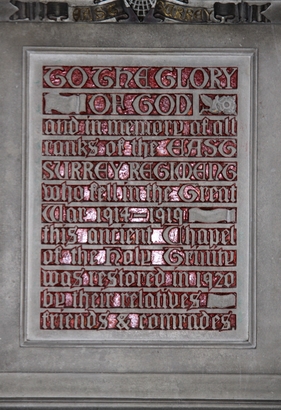 TO THE GLORY
OF GOD
and in memory of all
ranks of the EAST
SURREY REGIMENT
who fell in the Great
War 1914–1919
this ancient Chapel
of the Holy Trinity
was restored in 1920
by their relatives
friends & comrades